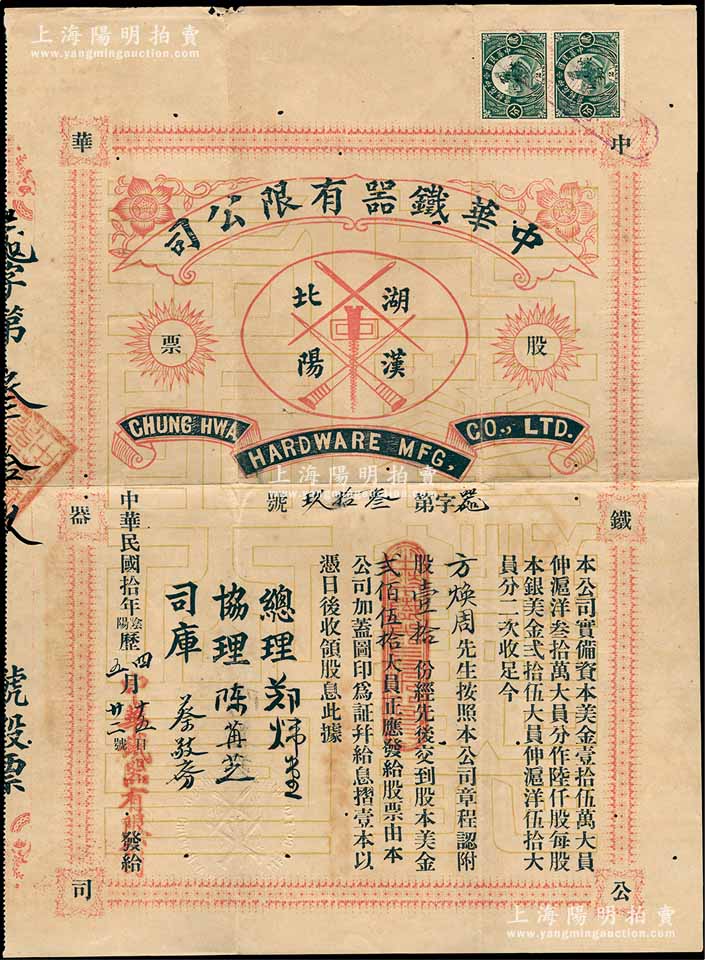 上海陽明拍賣
www.yangmingauction.com
中
華
鐵
器
公
司
中華鐵器有限公司
湖北
漢陽
股
票
CHUNG HWA
HARDWARE MFG,
CO., LTD.
器字第叁拾玖號
本公司實備資本美金壹拾伍萬大員
伸滬洋叁拾萬大員分作陸仟股每股
本銀美金弍拾伍大員伸滬洋伍拾大
員分二次收足今
方煥周先生按照本公司章程認附
股壹拾份經先後交到股本美金
弍佰伍拾大員正應發給股票由本
公司加蓋圖印爲証幷給息摺壹本以
憑日後收領股息此據
總理
協理 陳
司庫 蔡
中華民國拾年陰陽歷四五月十五廿二日號 發給
器字第叁拾玖
號股票
上海陽明拍賣
www.yangmingauction.com
上海陽明拍賣
www.yangmingauction.com